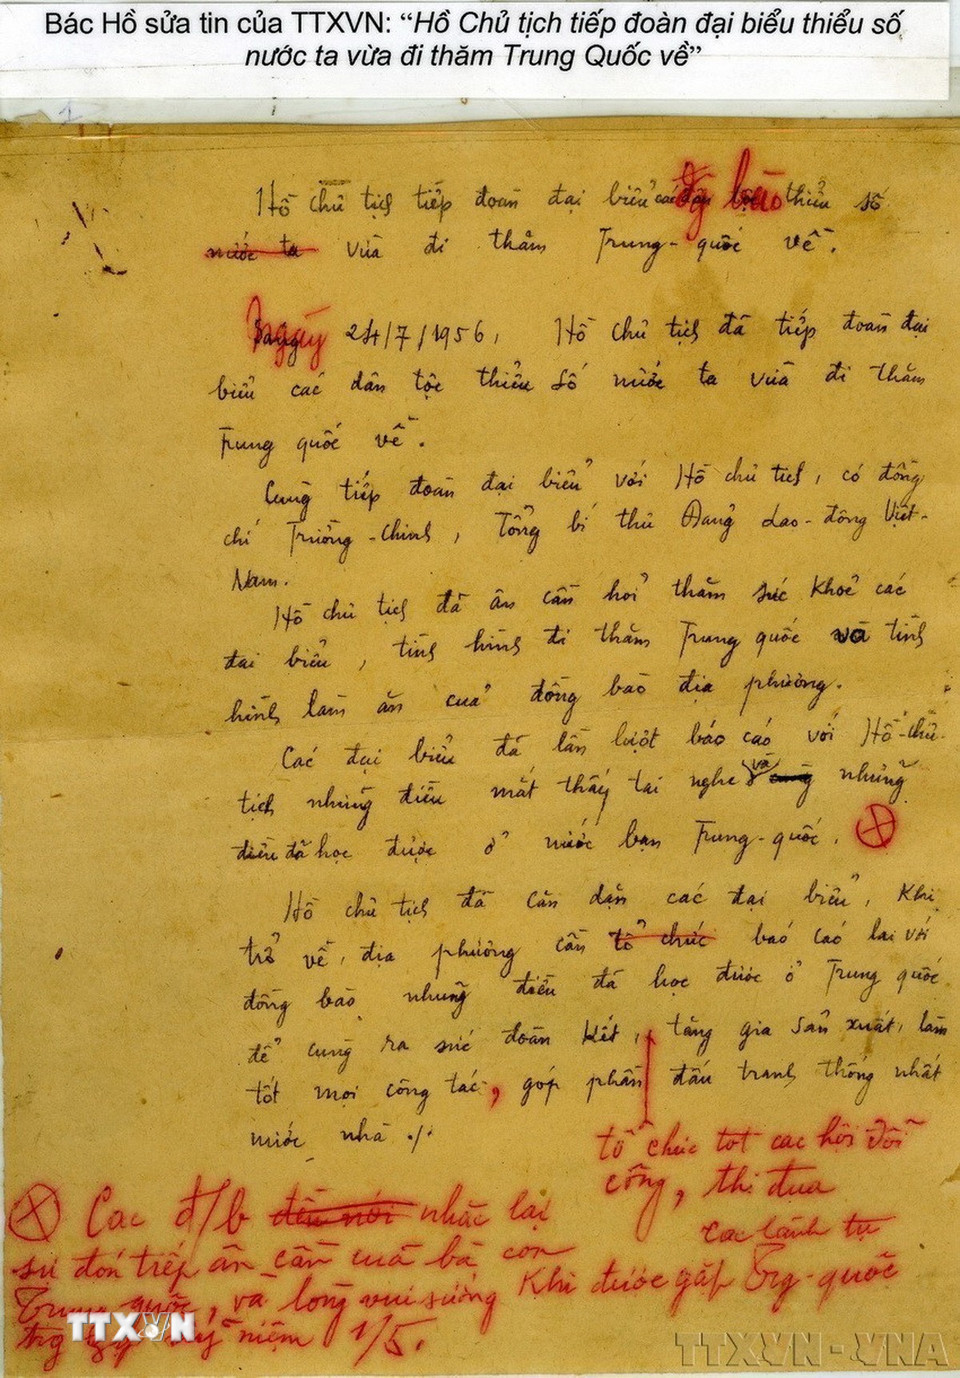 Bác Hồ sửa tin của TTXVN: “Hồ Chủ tịch tiếp đoàn đại biểu thiểu số
nước ta vừa đi thăm Trung Quốc về”
Hồ chủ tịch tiếp đoàn đại biểu các đg bào thiểu số
nước ta vừa đi thăm Trung-quốc về.
Ngày 24/7/1956, Hồ chủ tịch đã tiếp đoàn đại
biểu các dân tộc thiểu số nước ta vừa đi thăm
Trung quốc về.
Cùng tiếp đoàn đại biểu với Hồ chủ tịch, có đồng
chí Trường-chinh, Tổng bí thư Đảng Lao-động Việt-
Nam.
Hồ chủ tịch đã ân cần hỏi thăm sức khoẻ các
đại biểu, tình hình đi thăm Trung quốc và tình
hình làm ăn của đồng bào địa phương.
Các đại biểu đã lần lượt báo cáo với Hồ-chủ-
tịch những điều mắt thấy tai nghe và những
điều đã học được ở nước bạn Trung-quốc.
Hồ chủ tịch đã căn dặn các đại biểu, khi
trở về, địa phương cần tổ chức báo cáo lại với
đồng bào những điều đã học được ở Trung quốc
để cùng ra sức đoàn kết, tăng gia sản xuất, làm
tốt mọi công tác, góp phần đấu tranh thống nhất
nước nhà ./.
tổ chức tot cac hội đổi
công, thi đua
Cac đ/b đều nói nhăc lại
cac lãnh tụ
sự đón tiếp ân cần của bà con
Trung quốc, và lòng vui sướng khi được gặp Trg-quốc
trg kỷ niệm 1/5.
TTXVN
TTXVN - VNA